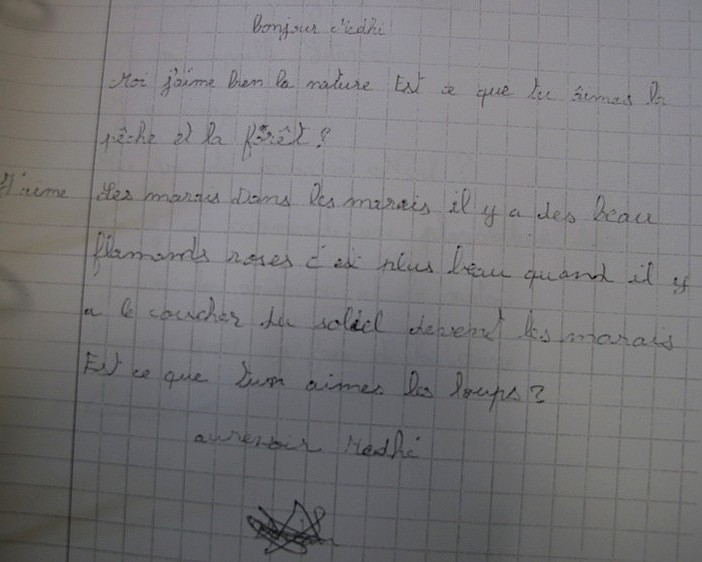 Bonjour Medhi
Moi j'aime bien la nature Est ce que tu aimes la
pêche et la forêt ?
J'aime les marais Dans les marais il y a des beau
flamands roses c'est plus beau quand il y
a le coucher du soliel devent les marais
Est ce que tu aimes les loups ?
aurevoir Medhi